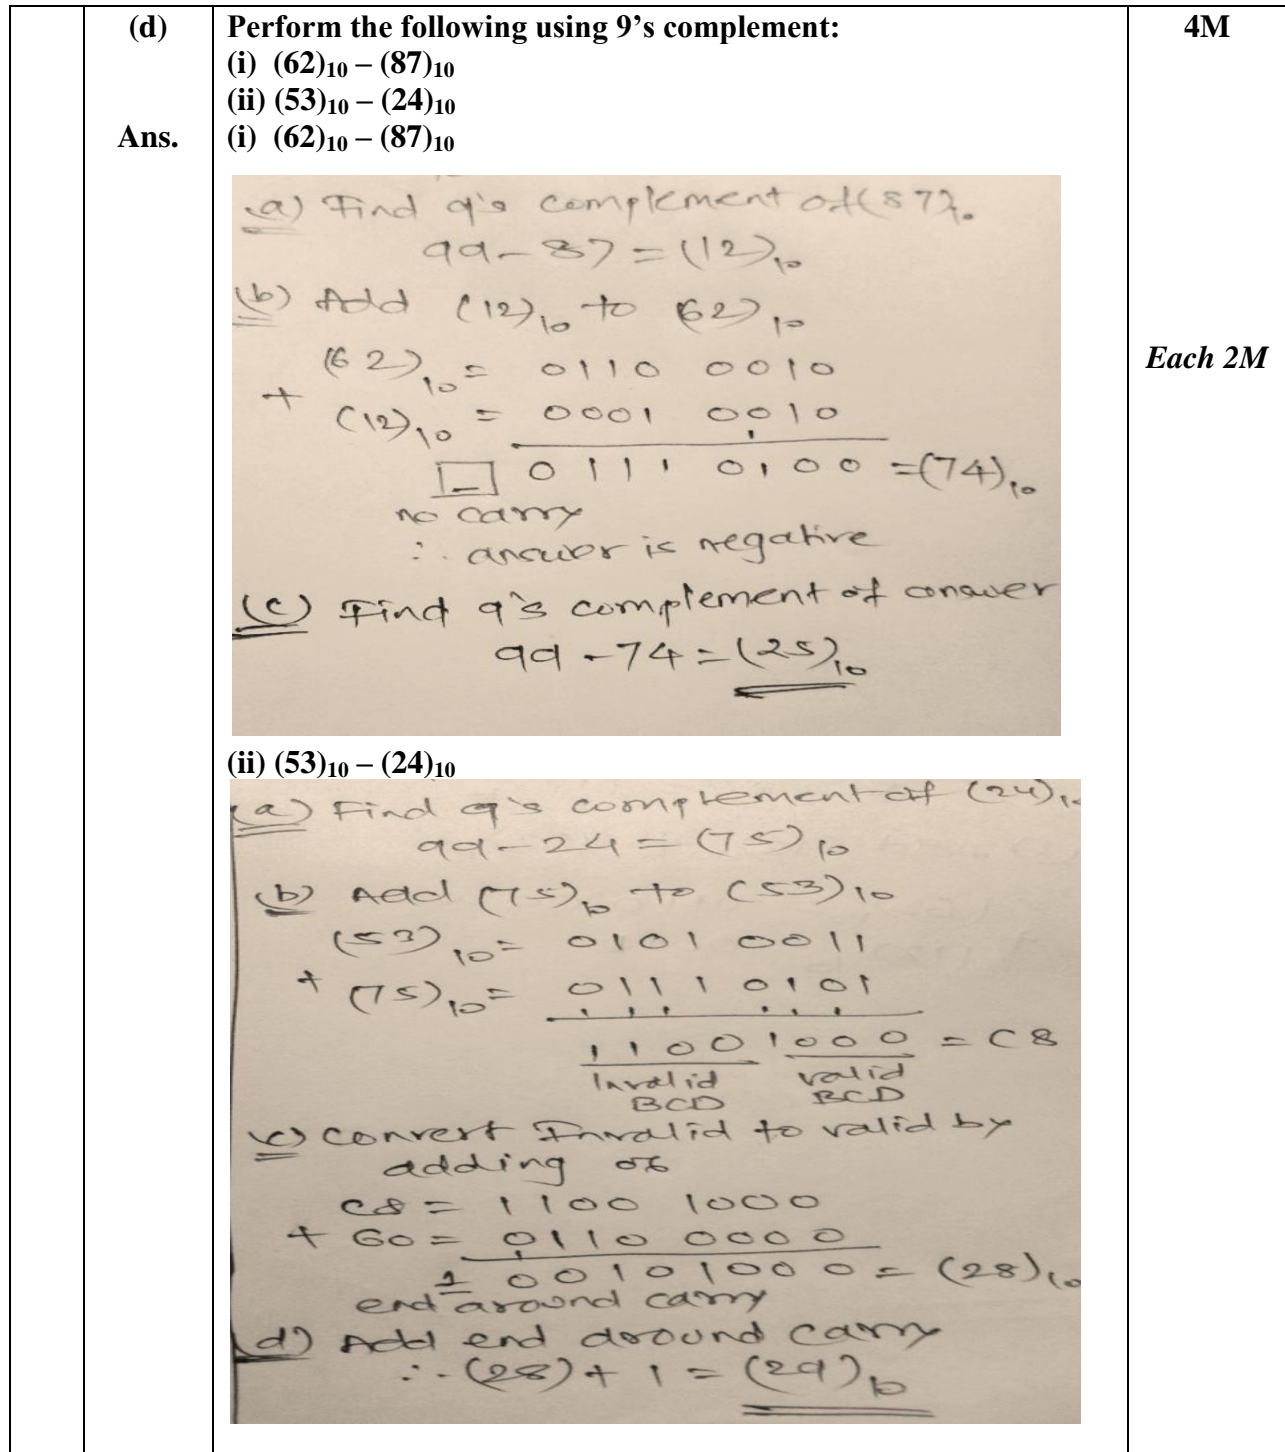 (d) Perform the following using 9’s complement: 4M
(i) (62)₁₀ – (87)₁₀
(ii) (53)₁₀ – (24)₁₀
Ans. (i) (62)₁₀ – (87)₁₀
(a) Find 9's complement of (87).
99 - 87 = (12)₁₀
(b) Add (12)₁₀ to (62)₁₀
Each 2M
(62)₁₀ = 0110 0010
+ (12)₁₀ = 0001 0010
0111 0100 = (74)₁₀
no carry
∴ answer is negative
(c) Find 9's complement of answer
99 - 74 = (25)₁₀
(ii) (53)₁₀ – (24)₁₀
(a) Find 9's complement of (24)₁₀
99 - 24 = (75)₁₀
(b) Add (75)₁₀ to (53)₁₀
(53)₁₀ = 0101 0011
+ (75)₁₀ = 0111 0101
1100 1000 = C8
Invalid valid
BCD BCD
(c) Convert Invalid to valid by
adding 06
C8 = 1100 1000
+ 60 = 0110 0000
1 0010 1000 = (28)₁₀
end around carry
(d) Add end around carry
∴ (28) + 1 = (29)₁₀